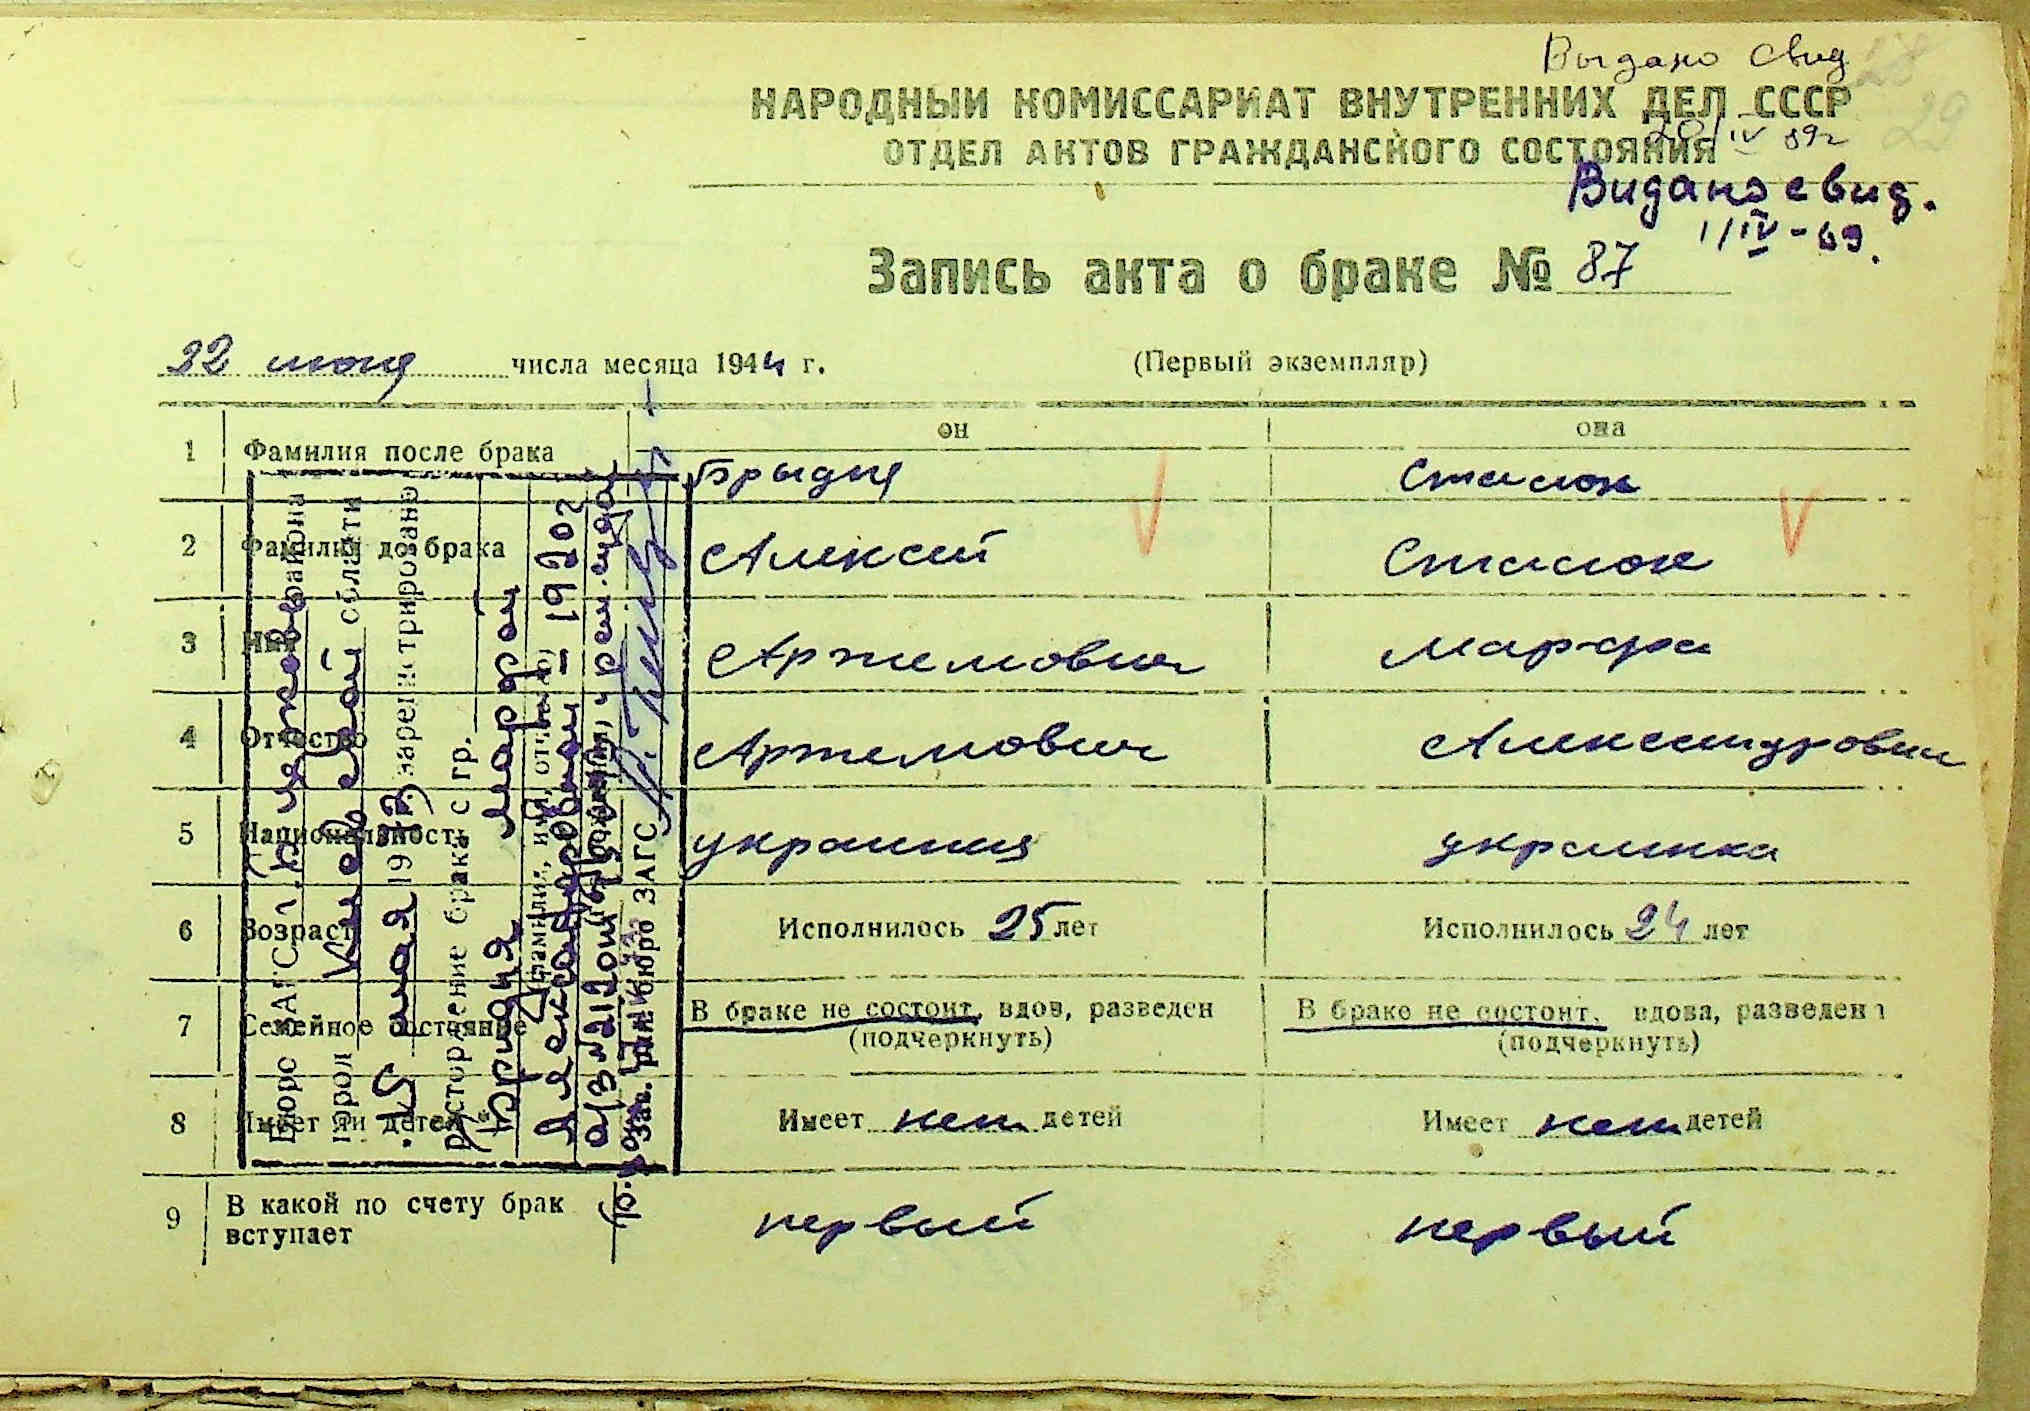 Выдано свид
28
29
НАРОДНЫЙ КОМИССАРИАТ ВНУТРЕННИХ ДЕЛ СССР
IV 89г
ОТДЕЛ АКТОВ ГРАЖДАНСКОГО СОСТОЯНИЯ
Видано свид.
1/IV-69.
Запись акта о браке № 87
22 июня числа месяца 1944 г. (Первый экземпляр)
он она
1 Фамилия после брака Брыдня Стасюк
2 Фамилия до брака Алексей Стасюк
3 Имя Артемович Марфа
4 Отчество Артемович Александровн
5 Национальность украинця украинка
6 Возраст Исполнилось 25 лет Исполнилось 24 лет
7 Семейное состояние В браке не состоит, вдов, разведен В браке не состоит, вдова, разведена
(подчеркнуть) (подчеркнуть)
8 Имеет ли детей Имеет нет детей Имеет нет детей
9 В какой по счету брак первый первый
вступает
Бюро ЗАГС района
город Киевской области
15 мая 19 зарегистрировано
расторжение брака с гр.
Бридня Марфой
(фамилия, имя, отчество)
Александровной 1920г
Зав. бюро ЗАГС